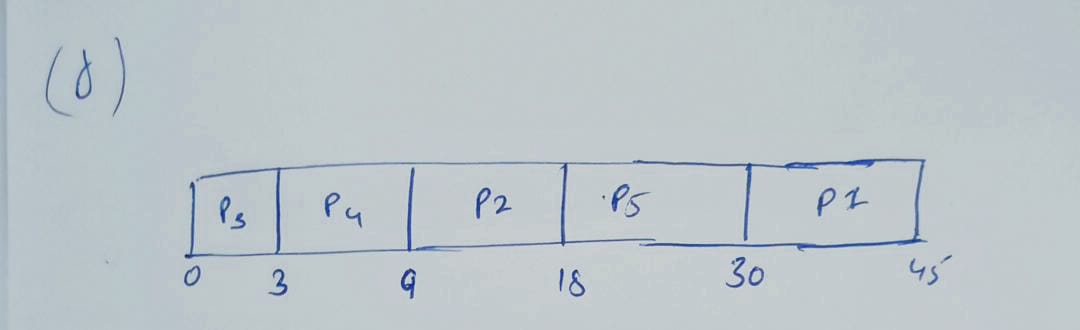 (8)
P3 P4 P2 P5 P1
0 3 9 18 30 45